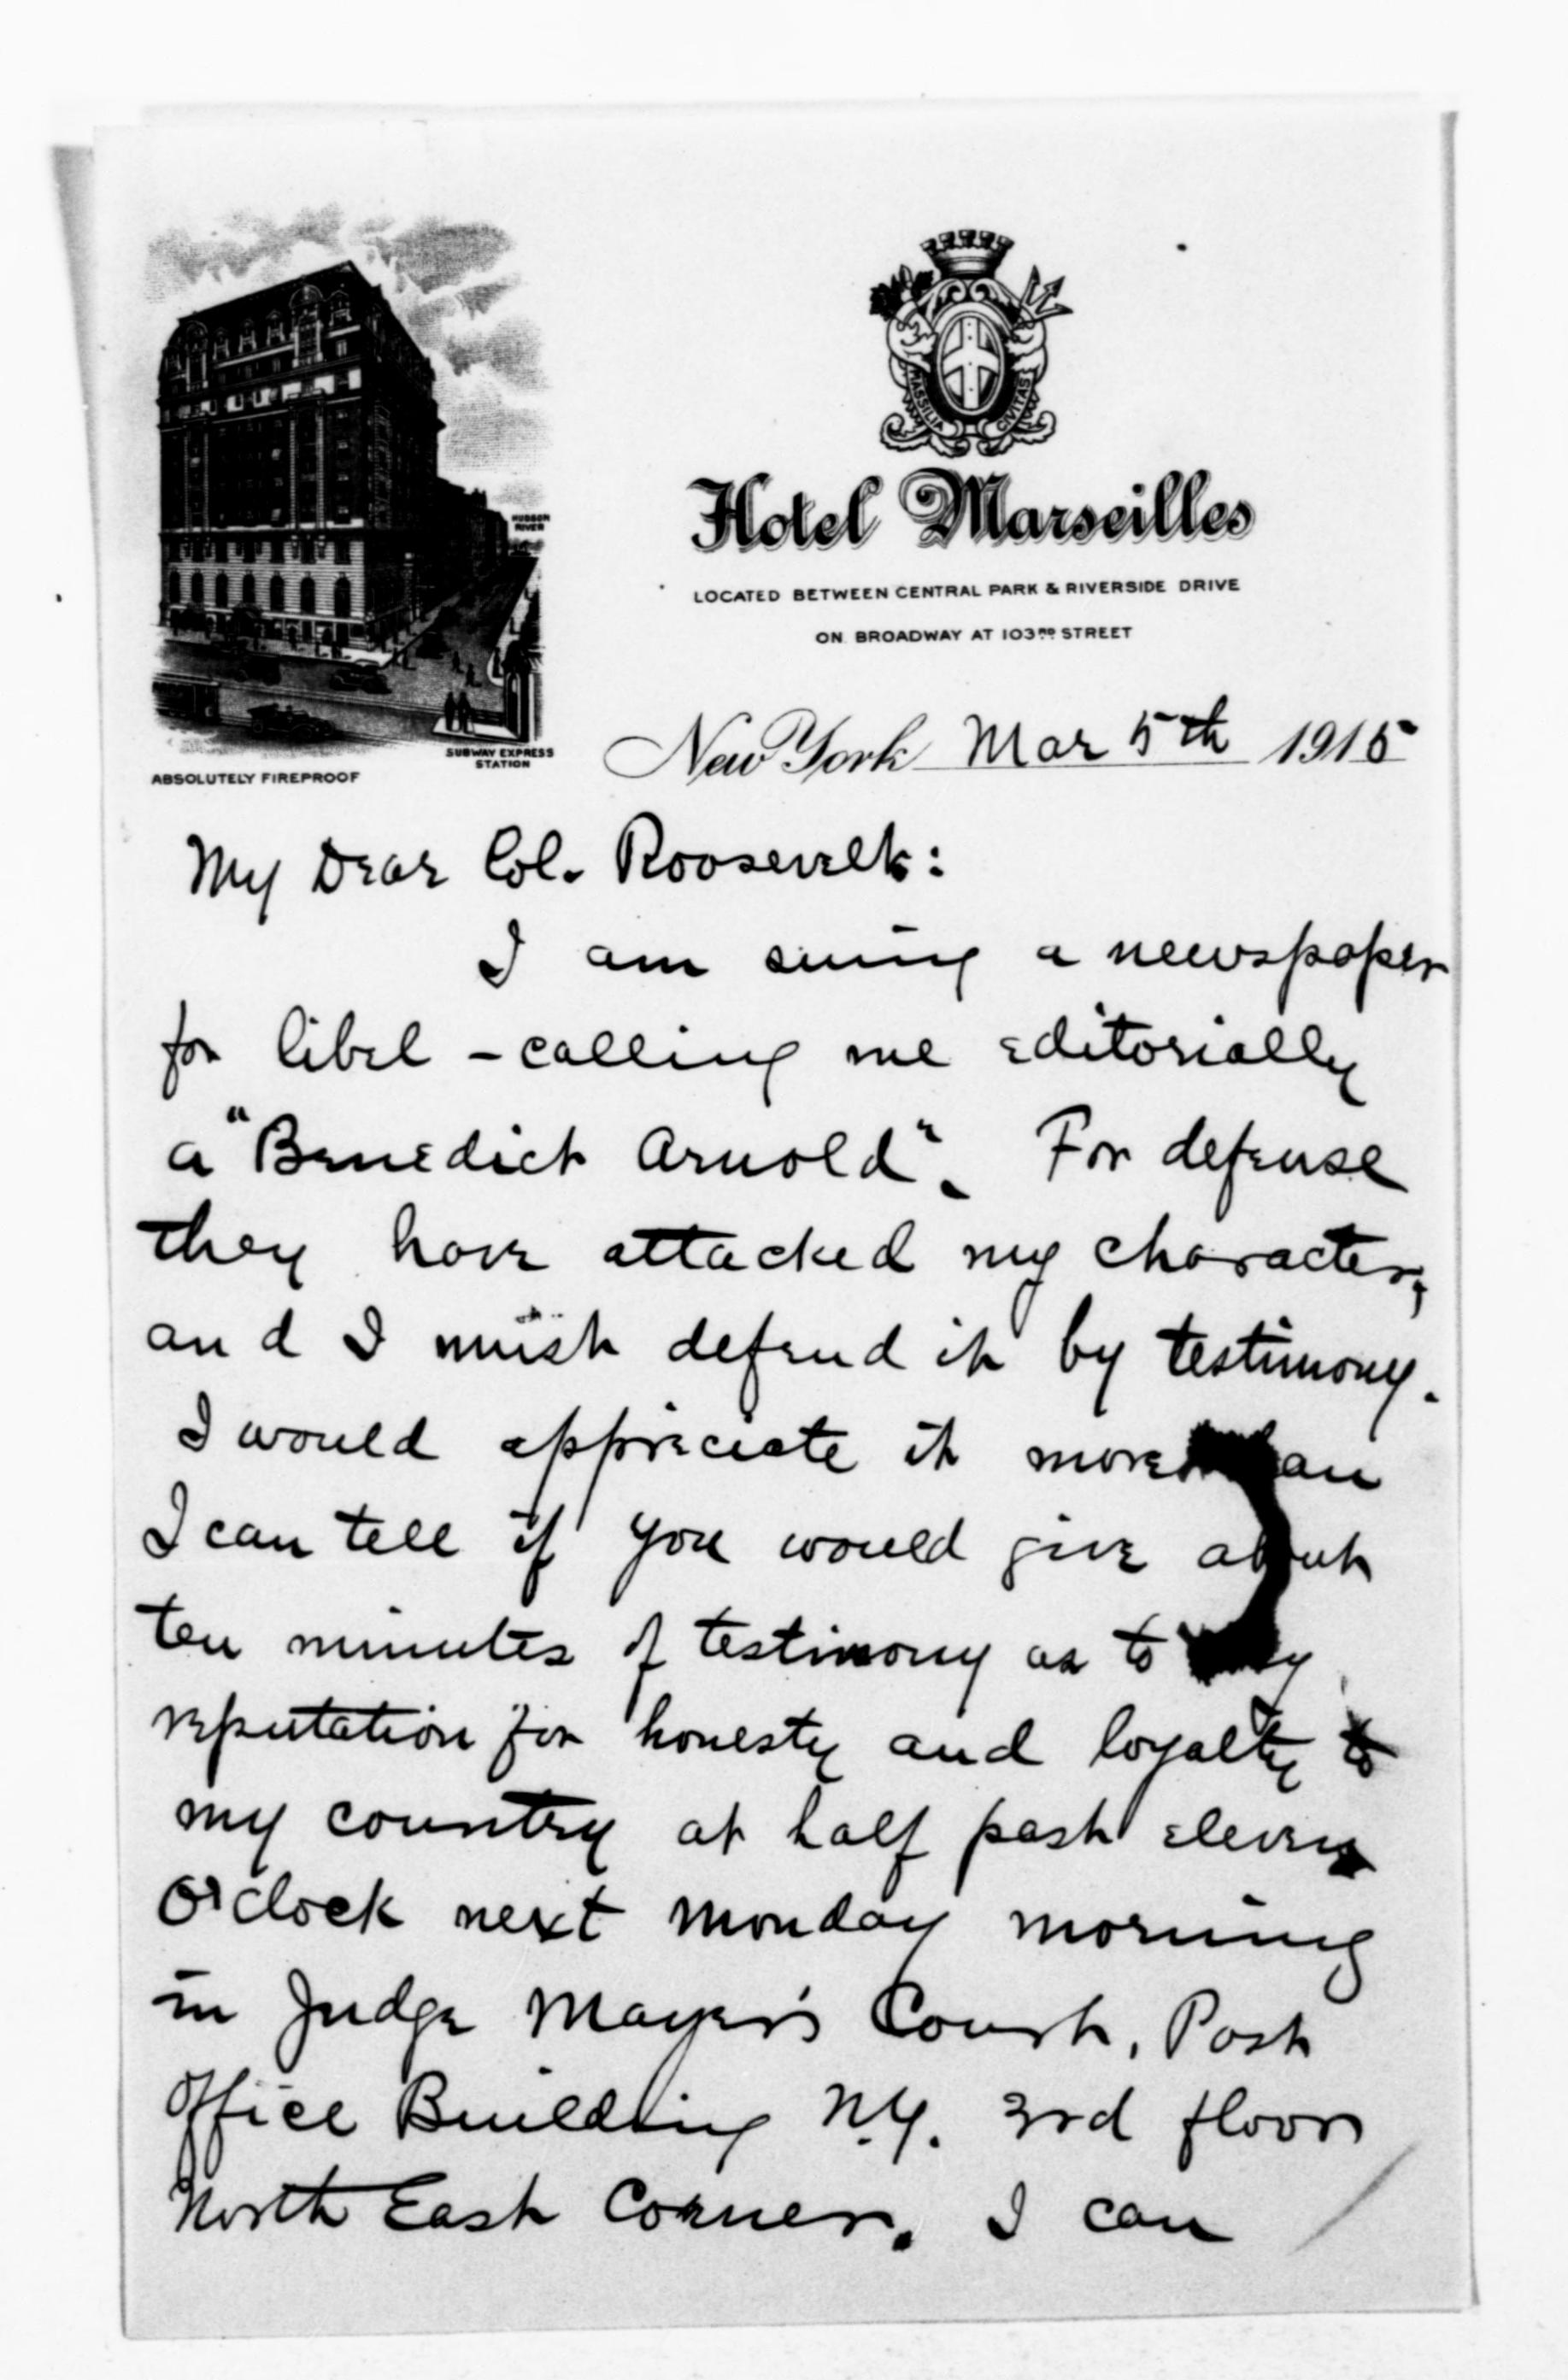 MASSILIA CIVITAS
Hotel Marseilles
LOCATED BETWEEN CENTRAL PARK & RIVERSIDE DRIVE
ON BROADWAY AT 103RD STREET
HUDSON
RIVER
SUBWAY EXPRESS
STATION
ABSOLUTELY FIREPROOF
New York Mar 5th 1915
My Dear Col. Roosevelt:
I am suing a newspaper
for libel - calling me editorially
a "Benedict Arnold". For defense
they have attacked my character,
and I must defend it by testimony.
I would appreciate it more than
I can tell if you would give about
ten minutes of testimony as to my
reputation for honesty and loyalty to
my country at half past eleven
o'clock next Monday morning
in Judge Mayer's Court, Post
Office Building N.Y. 3rd floor
North East Corner. I can